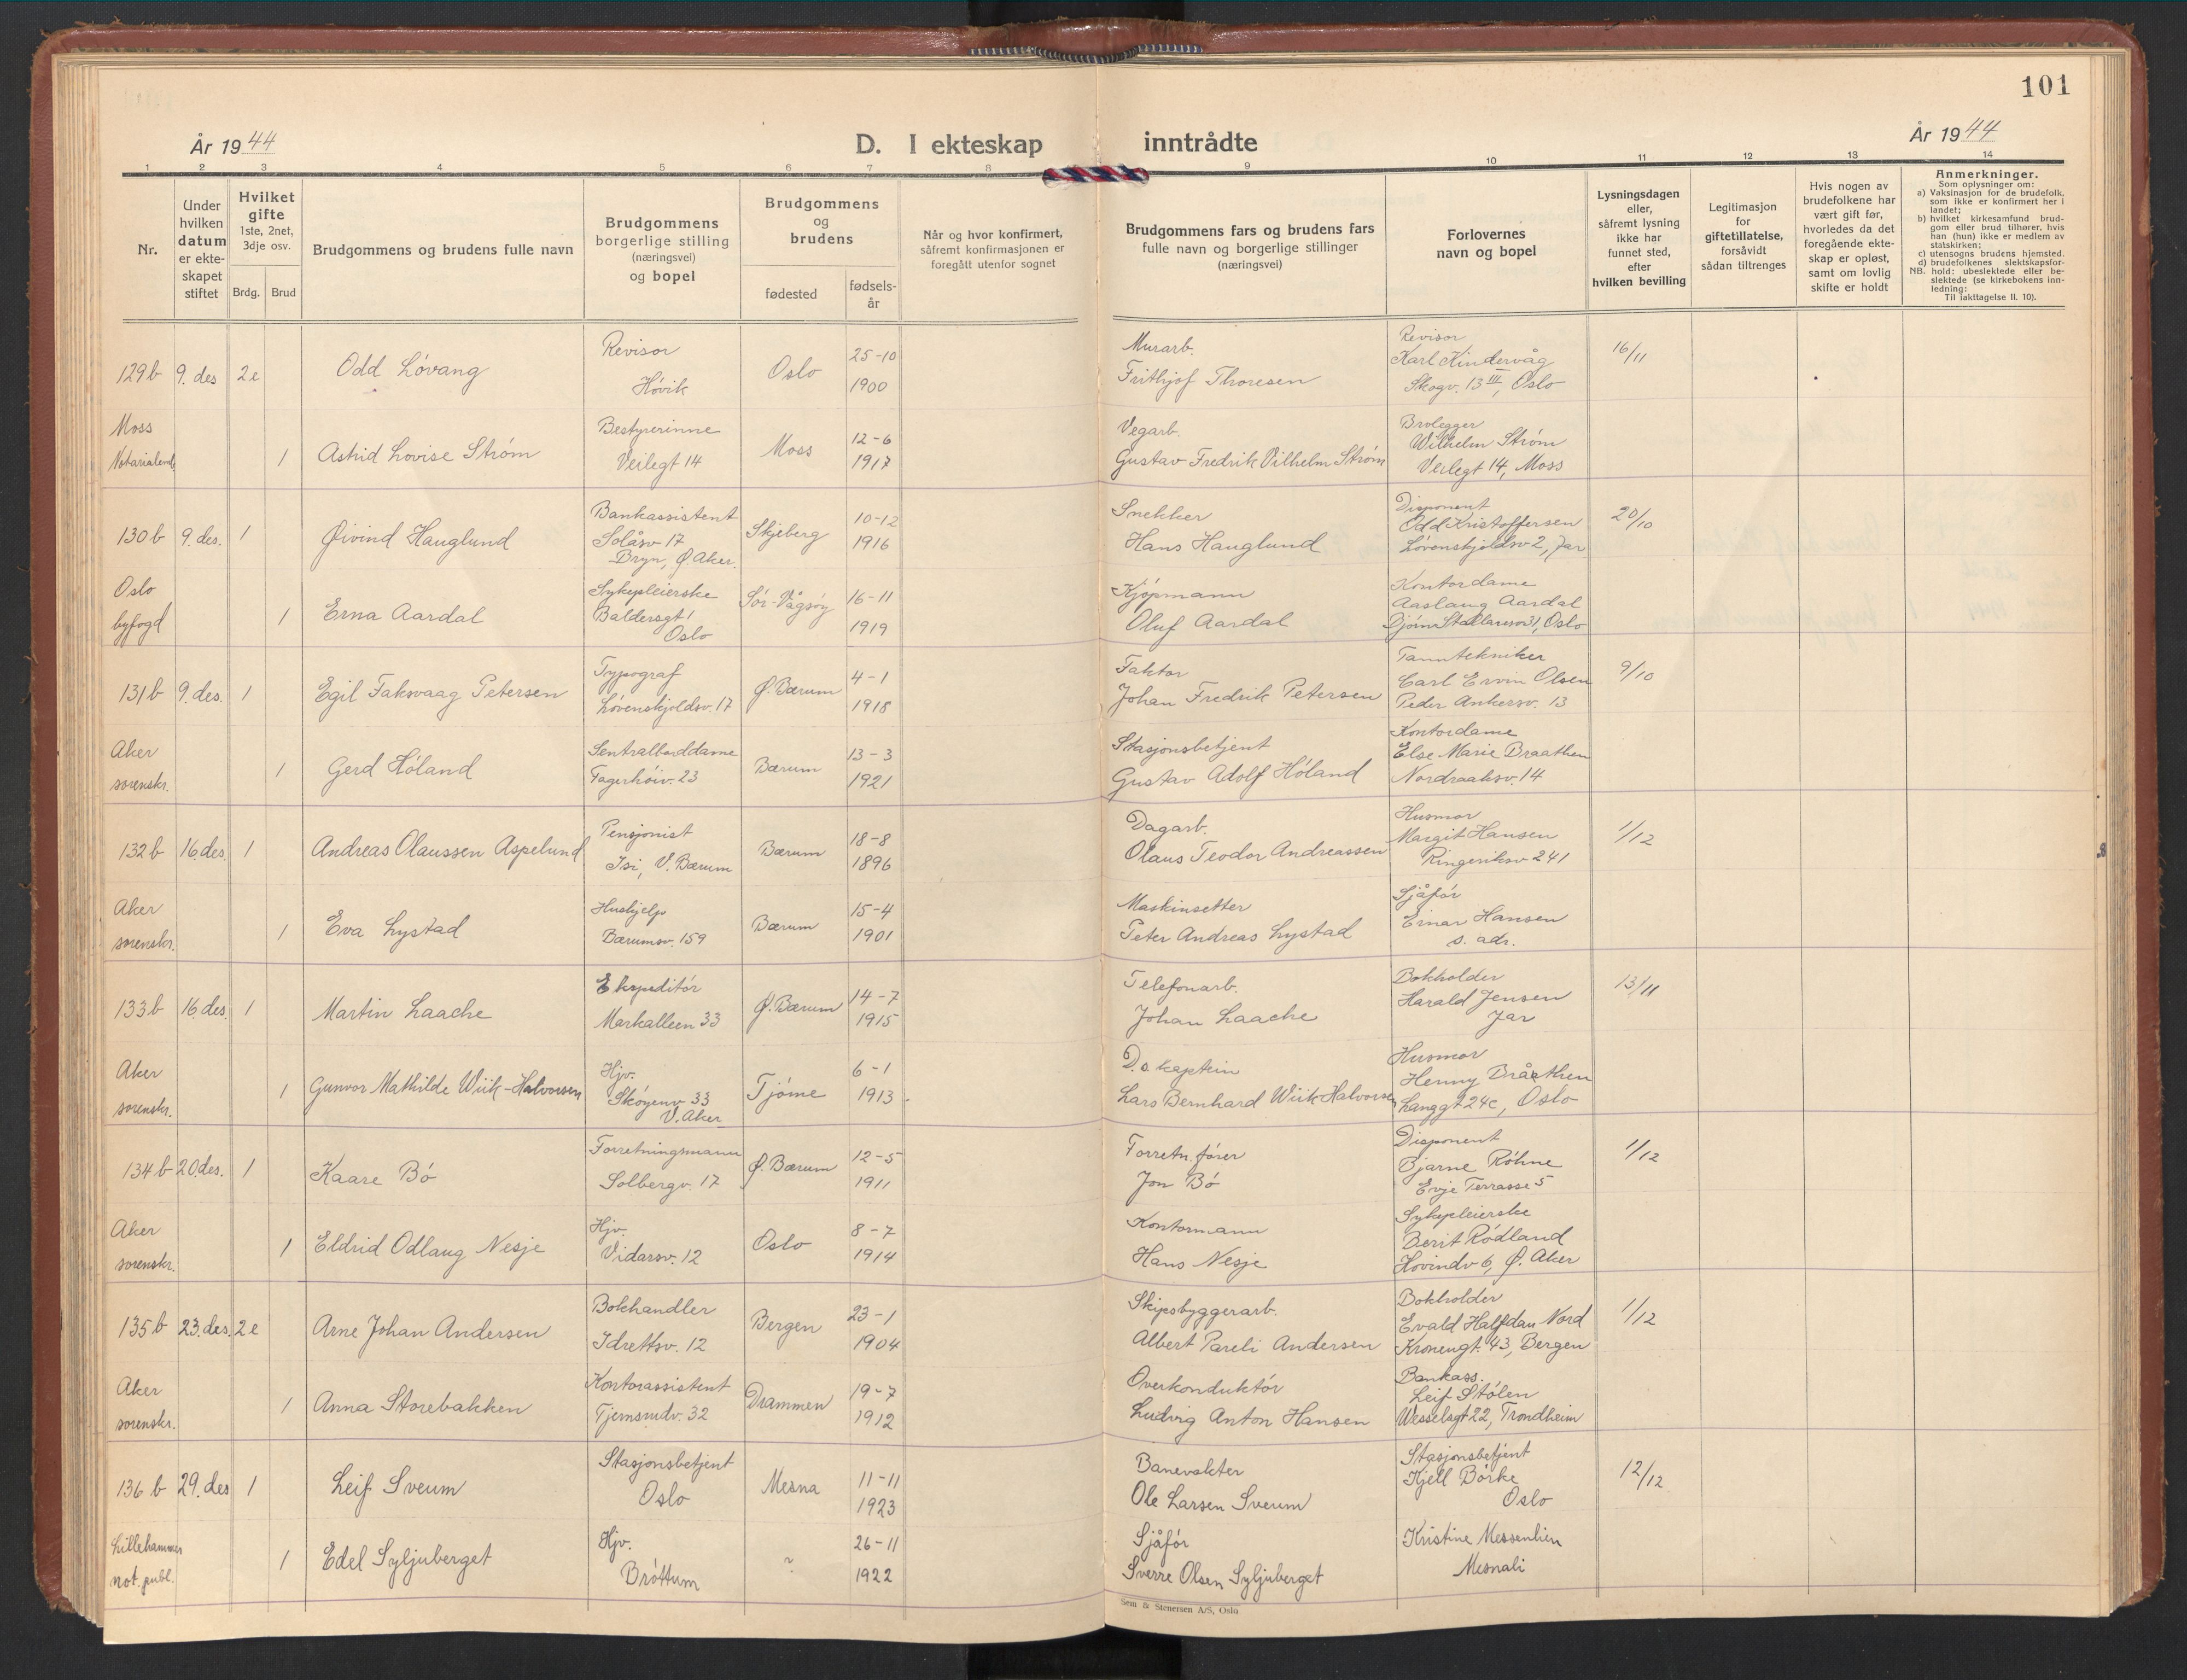 101
År 1944
D. I ekteskap inntrådte
År 1944
1 2 3 4 5 6 7 8 9 10 11 12 13 14
Nr.
Under hvilken datum er ekteskapet stiftet
Hvilket gifte 1ste, 2net, 3dje osv.
Brdg. Brud
Brudgommens og brudens fulle navn
Brudgommens borgerlige stilling (næringsvei) og bopel
Brudgommens og brudens
fødested
fødsels-år
Når og hvor konfirmert, såfremt konfirmasjonen er foregått utenfor sognet
Brudgommens fars og brudens fars fulle navn og borgerlige stillinger (næringsvei)
Forlovernes navn og bopel
Lysningsdagen eller, såfremt lysning ikke har funnet sted, efter hvilken bevilling
Legitimasjon for giftetillatelse, forsåvidt sådan tiltrenges
Hvis nogen av brudefolkene har vært gift før, hvorledes da det foregående ekteskap er opløst, samt om lovlig skifte er holdt
Anmerkninger.
Som oplysninger om:
a) Vaksinasjon for de brudefolk, som ikke er konfirmert her i landet;
b) hvilket kirkesamfund brudgom eller brud tilhører, hvis han (hun) ikke er medlem av statskirken;
c) utensogns brudens hjemsted.
d) brudefolkenes slektskapsforhold: ubeslektede eller beslektede (se kirkebokens innledning:
NB. Til iakttagelse II. 10).
129b 9. des 2e Odd Lövang Revisor Hövik Oslo 25-10 1900 Murarb. Frithjof Thoresen Revisor Karl Kindervåg Skogv. 13 III, Oslo 16/11
Moss Notarialend. 1 Astrid Lovise Ström Bestyrerinne Veilegt 14 Moss 12-6 1917 Vegarb. Gustav Fredrik Vilhelm Ström Brolegger Wilhelm Ström Veilegt 14, Moss
130b 9. des. 1 Øivind Hauglund Bankassistent Solåsv 17 Bryn, Ø. Aker. Skjeberg 10-12 1916 Snekker Hans Hauglund Disponent Odd Kristoffersen Lövenskjoldsv 2, Jar 20/10
Oslo byfogd 1 Erna Aardal Sykepleierske Baldersgt 1 Oslo Sör-Vågsöy 16-11 1919 Kjöpmann Oluf Aardal Kontordame Aaslaug Aardal Oslo
131b 9. des. 1 Egil Faksvaag Petersen Typograf Lövenskjoldsv. 17 Ø. Bærum 4-1 1918 Faktor Johan Fredrik Petersen Tanntekniker Carl Ervin Olsen Peder Ankersv. 13 9/10
Aker sorenskr. 1 Gerd Höland Sentralborddame Fagerhöiv. 23 Bærum 13-3 1921 Stasjonsbetjent Gustav Adolf Höland Kontordame Else Marie Braathen Nordraaksv. 14
132b 16. des. 1 Andreas Olaussen Aspelund Pensjonist Isi, V. Bærum Bærum 18-8 1896 Dagarb. Olaus Teodor Andreassen Husmor Margit Hansen Ringeriksv 241 1/12
Aker sorenskr. 1 Eva Lystad Hushjelp Bærumsv. 159 Bærum 15-4 1901 Maskinsetter Peter Andreas Lystad Sjåför Einar Hansen s. adr.
133b 16. des. 1 Martin Laache Ekspeditör Markalleen 33 Ø. Bærum 14-7 1915 Telefonarb. Johan Laache Bokholder Harald Jensen Jar 13/11
Aker sorenskr. 1 Gunvor Mathilde Wiik-Halvorsen Hjv. Sköyenv 33 V. Aker Tjöme 6-1 1913 D.s. kaptein Lars Bernhard Wiik Halvorsen Husmor Henny Bråthen Langgt 24c, Oslo
134b 20. des. 1 Kaare Bö Forretningsmann Solbergv. 17 Ø. Bærum 12-5 1911 Forretn.förer Jon Bö Disponent Bjarne Röhne Evje Terrasse 5 1/12
Aker sorenskr. 1 Eldrid Odlaug Nesje Hjv. Vidarsv. 12 Oslo 8-7 1914 Kontormann Hans Nesje Sykepleierske Berit Rödland Hovindv 6, Ø. Aker
135b 23. des. 2e Arne Johan Andersen Bokhandler Idrettsv. 12 Bergen 23-1 1904 Skipsbyggerarb. Albert Pareli Andersen Bokholder Evald Halfdan Nord Kronengt. 43, Bergen 1/12
Aker sorenskr. 1 Anna Storebakken Kontorassistent Tjernsrudv. 32 Drammen 19-7 1912 Overkonduktör Ludvig Anton Hansen Bankass. Leif Stölen Wesselsgt 22, Trondheim
136b 29. des 1 Leif Sveum Stasjonsbetjent Oslo Mesna 11-11 1923 Banevakter Ole Larsen Sveum Stasjonsbetjent Kjell Börke Oslo 12/12
Lillehammer not. publ. 1 Edel Syljuberget Hjv. Bröttum " 26-11 1922 Sjåför Sverre Olsen Syljuberget Kristine Messenlien Mesnali
Sem & Stenersen A/S, Oslo